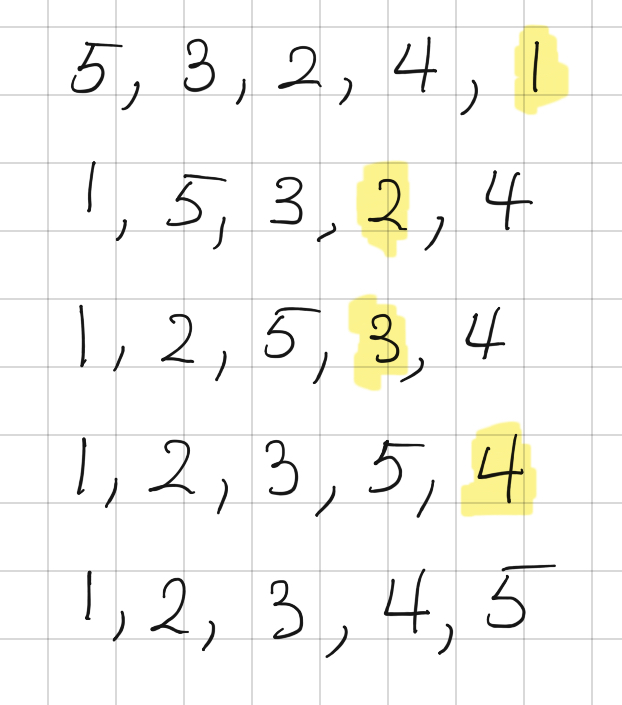 5, 3, 2, 4, 1
1, 5, 3, 2, 4
1, 2, 5, 3, 4
1, 2, 3, 5, 4
1, 2, 3, 4, 5